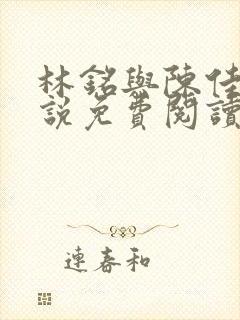 林銘與陳佳
說免費閱讀
連春和